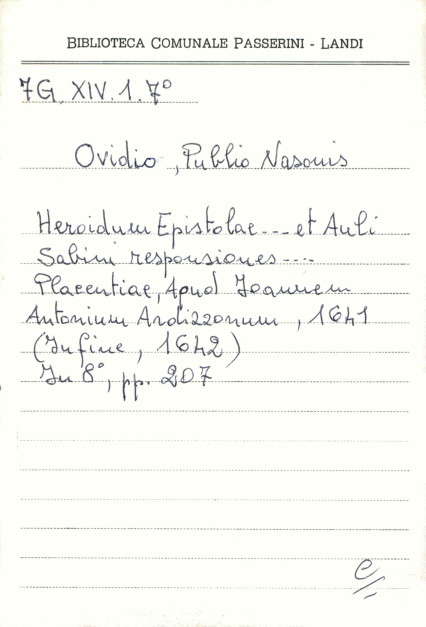 BIBLIOTECA COMUNALE PASSERINI - LANDI
7G. XIV. 1. 7°
Ovidio, Publio Nasonis
Heroidum Epistolae --- et Auli
Sabini responsiones ----
Placentiae, Apud Joannem
Antonium Ardizzonum, 1641
(In fine, 1642)
In 8°, pp. 207